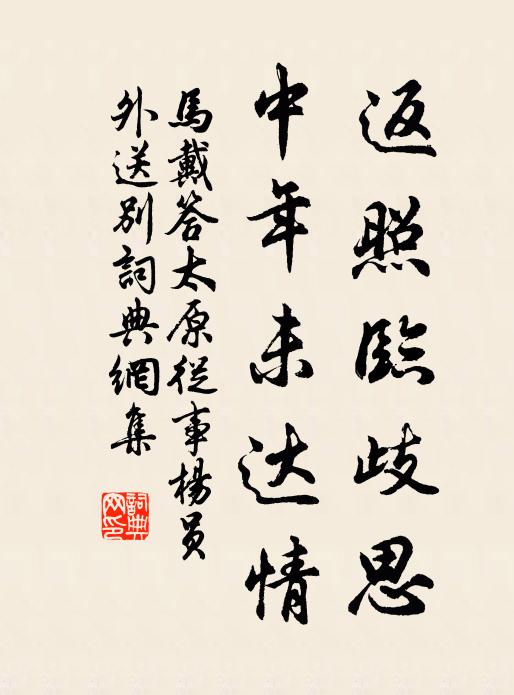 返照臨歧思
中年未达情
馬戴答太原從事楊员
外送别詞典網集
詞典
网印